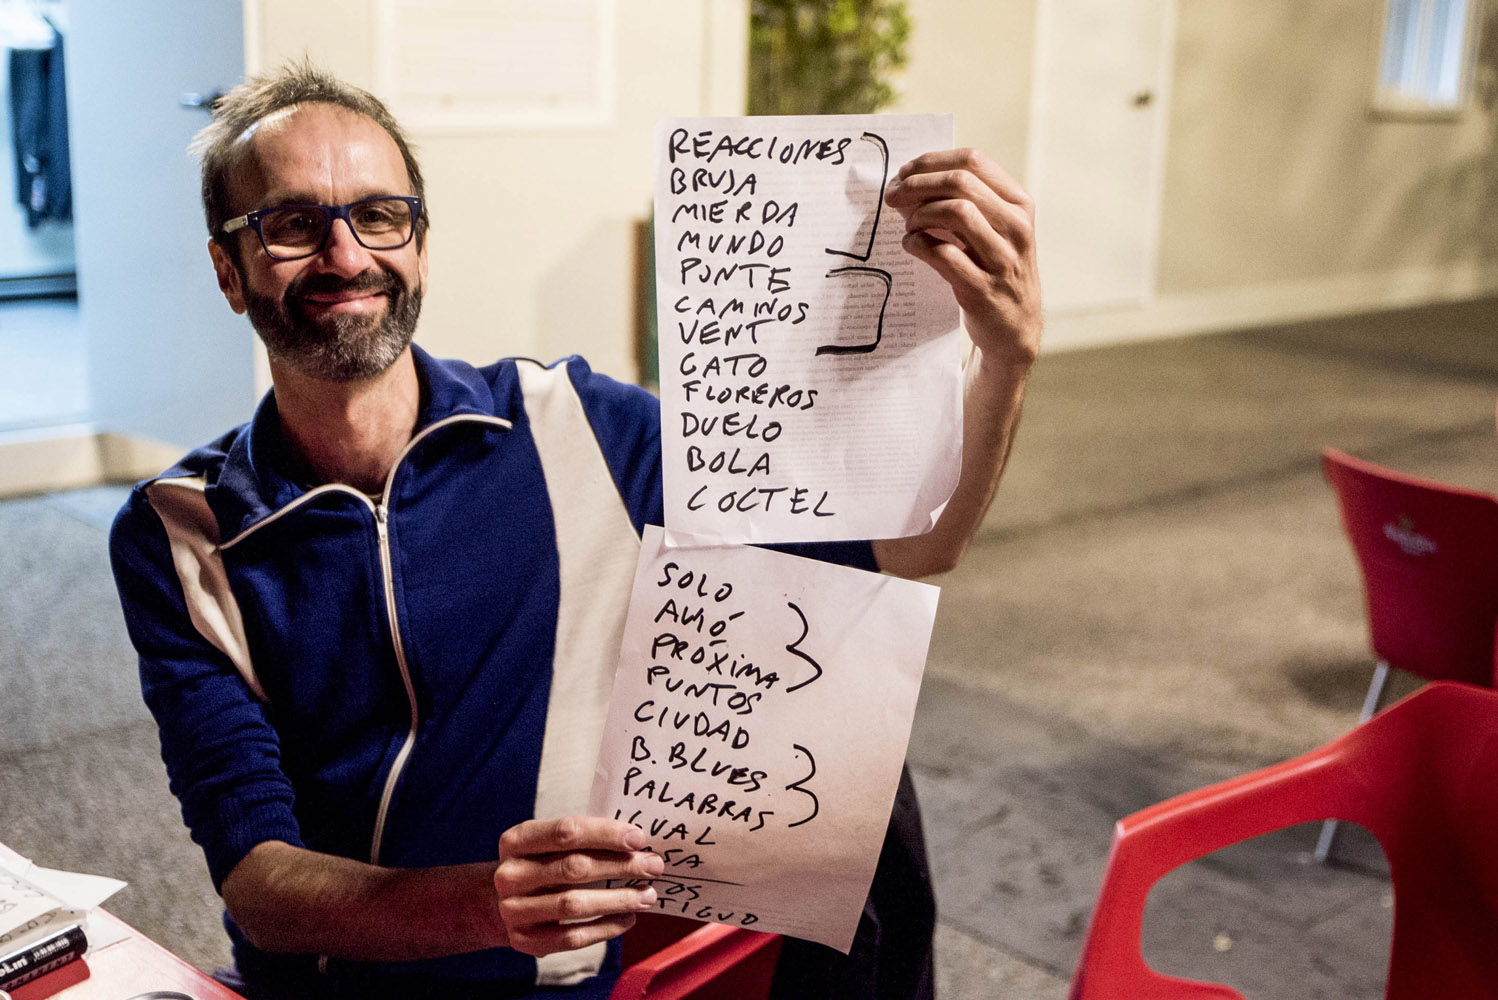 REACCIONES
BRUJA
MIERDA
MUNDO
PONTE
CAMINOS
VENT
GATO
FLOREROS
DUELO
BOLA
COCTEL
SOLO
PRÓXIMA
PUNTOS
CIUDAD
B. BLUES
PALABRAS
IGUAL